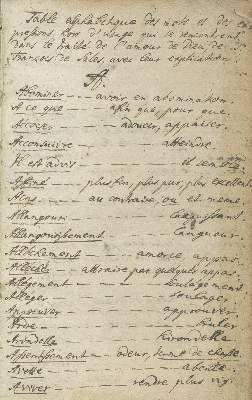 Table alphabetique des mots et des ex
pressions hors d'usage qui se rencontrent
Dans le traité de l'amour de Dieu, de St
françois de Sales, avec leur explication.
A.
Abominer --- avoir en abomination.
A ce que --- afin que, pour que
Accoiser --- adoucir, appaiser.
Acconsuivre --- atteindre.
Il est advis --- il semble
Affiné --- plus fin, plus pur, plus excellent
Ains --- au contraire, ou et meme.
Allangouri --- Languissant
Allangourissement --- Langueur.
Allechement --- amorce, appas.
Allecher --- attraire par quelques appas.
Allegement --- soulagement
Alleger --- soulager.
Appreuver --- approuver.
Ardre --- bruler
Arondelle --- hirondelle
--- odeur, terme de chasse.
Avette --- abeille.
Aviver --- rendre plus vif.